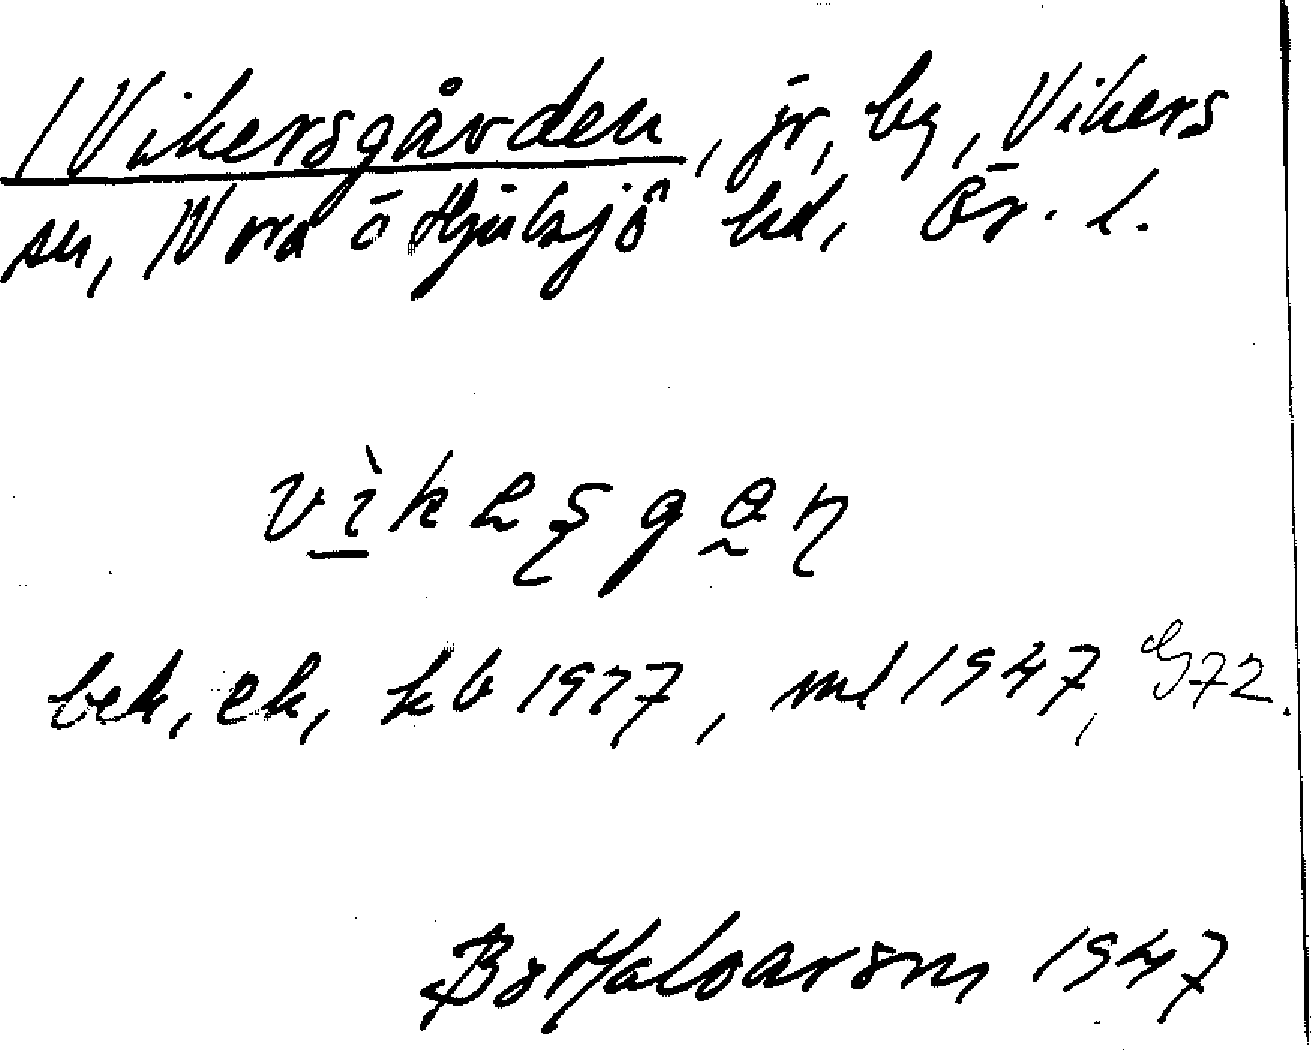 Vikersgården, jr, by, Vikers
sn, Nora o Hjulsjö hd, Ör. l.
vìkeşgɑɳ
bek, ek, kb 1937, ml 1947, G72.
Bo Halvarson 1947